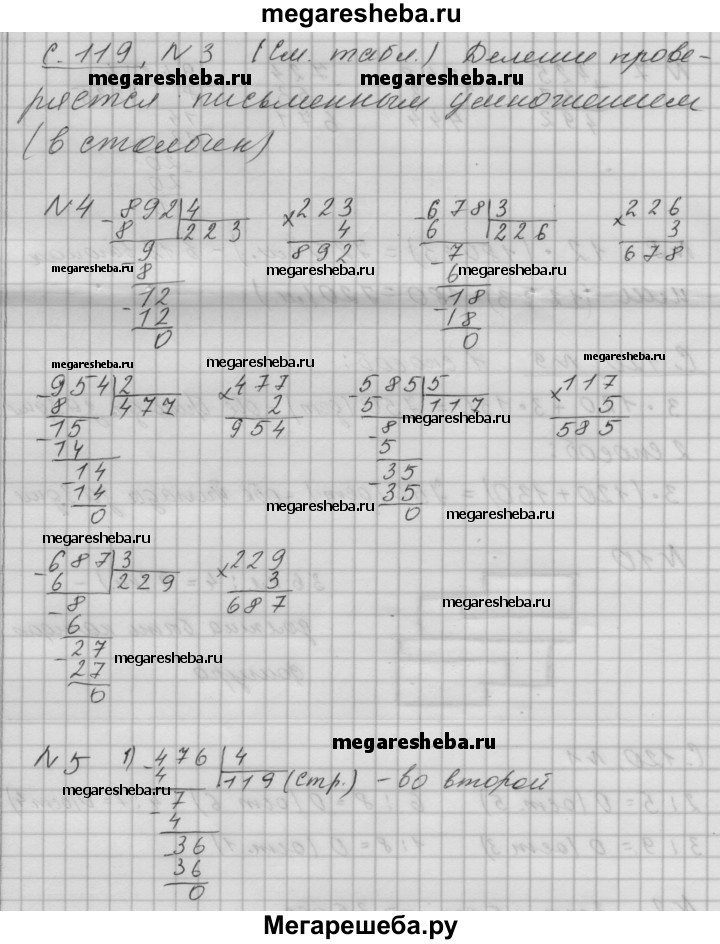 megaresheba.ru
с. 119, N 3 (См. табл.) Деление прове-
megaresheba.ru megaresheba.ru
ряется письменным умножением
(в столбик)
N4 -892|4 ×223 -678|3 ×226
8 223 4 6 226 3
-9 892 -7 678
megaresheba.ru megaresheba.ru megaresheba.ru megaresheba.ru
8 6
-12 -18
12 18
0 0
megaresheba.ru megaresheba.ru megaresheba.ru
-954|2 ×477 -585|5 ×117
8 477 2 5 117 5
-15 954 -8 585
megaresheba.ru
14 5
-14 -35
14 -35
0 0
megaresheba.ru megaresheba.ru megaresheba.ru
-687|3 ×229
6 229 3
-8 687
megaresheba.ru
6
-27
27
0
megaresheba.ru
megaresheba.ru
N5 1) -476|4
4 119 (стр.) - во второй
-7
4
-36
36
0
megaresheba.ru
Мегарешеба.ру